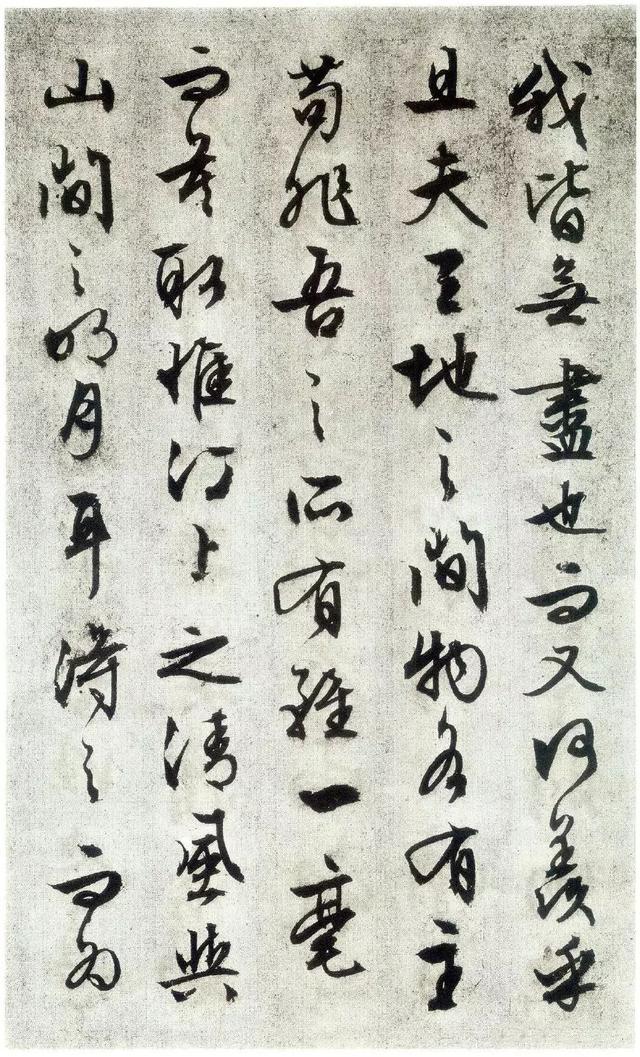 我皆無盡也而又何羨乎
且夫天地之間物各有主
苟非吾之所有雖一毫
而莫取惟江上之清風與
山間之明月耳得之而為